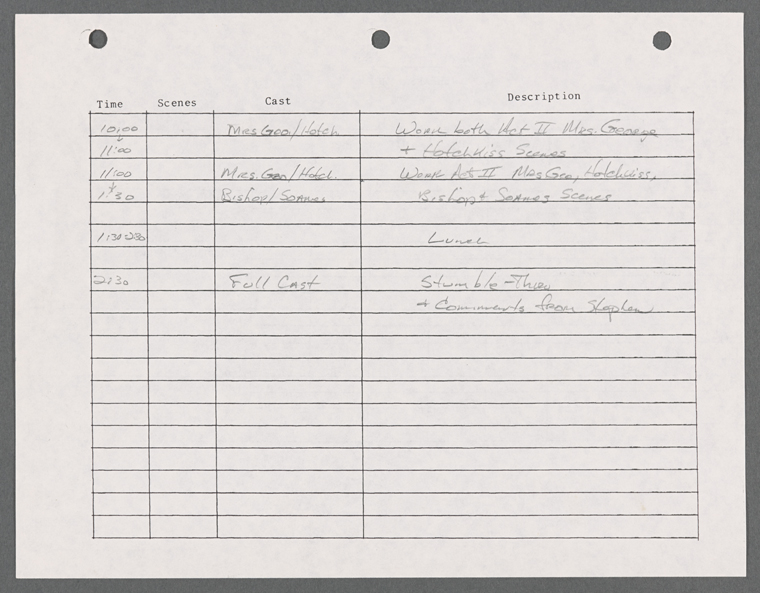 Time Scenes Cast Description
10:00 Mrs Geo./Hotch Work both Act II Mrs. George
11:00 + Hotchkiss Scenes
11:00 Mrs. Geo/Hotch. Work Act II Mrs Geo, Hotchkiss,
1:30 Bishop/Soames Bishop + Soames Scenes
1:30-2:30 Lunch
2:30 Full Cast Stumble-Thru
+ Comments from Stephen